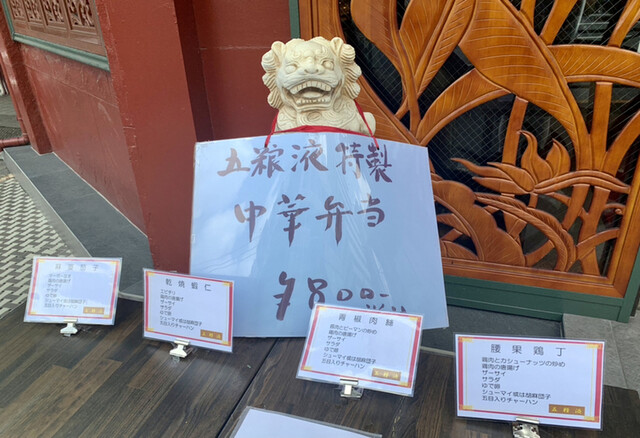 五粮液特製
中華弁当
¥800
乾焼蝦仁
エビチリ
鶏肉の唐揚げ
ザーサイ
サラダ
ゆで卵
シューマイ或は胡麻団子
五目入りチャーハン
五粮液
青椒肉絲
豚肉とピーマンの炒め
鶏肉の唐揚げ
ザーサイ
サラダ
ゆで卵
シューマイ或は胡麻団子
五目入りチャーハン
五粮液
腰果鶏丁
鶏肉とカシューナッツの炒め
鶏肉の唐揚げ
ザーサイ
サラダ
ゆで卵
シューマイ或は胡麻団子
五目入りチャーハン
五粮液
鶏肉の唐揚げ
ザーサイ
サラダ
ゆで卵
シューマイ或は胡麻団子
五目入りチャーハン
五粮液